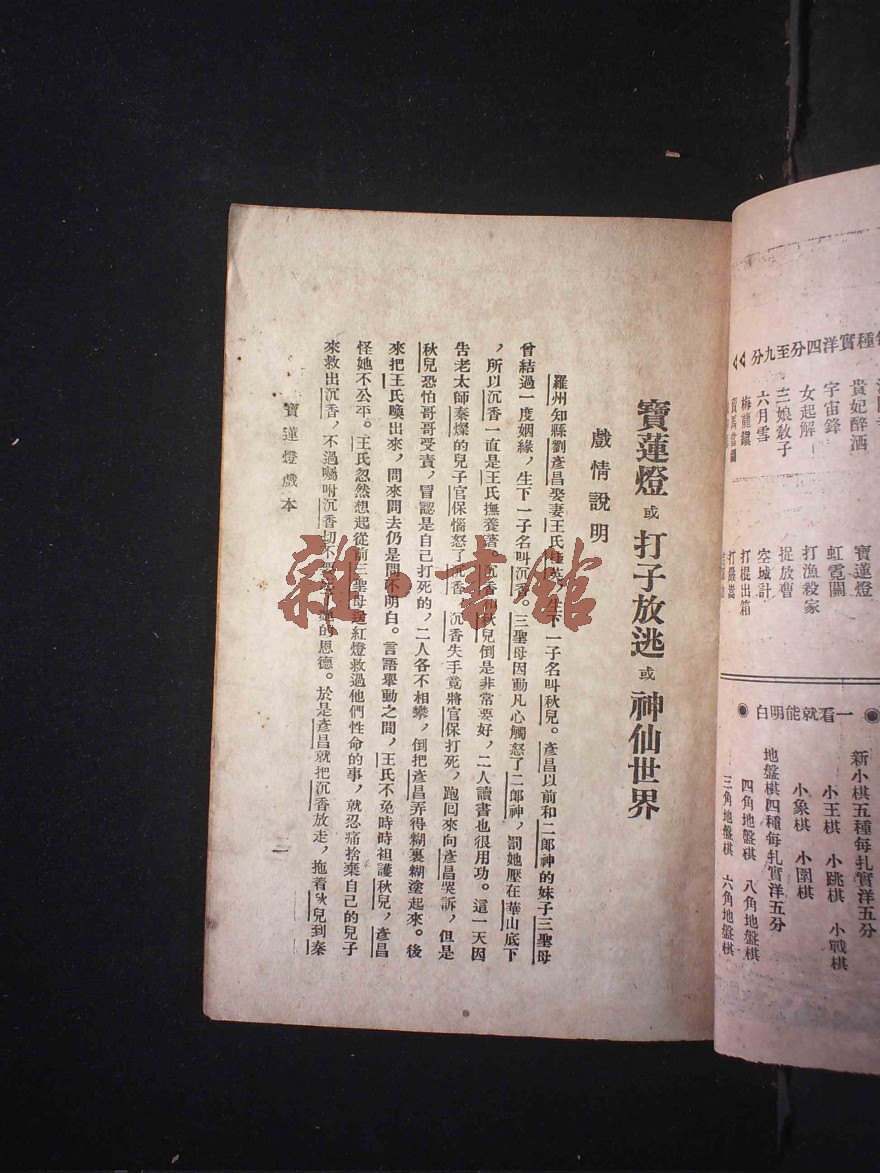 每種實洋四分至九分
貴妃醉酒
宇宙鋒
女起解
三娘敎子
六月雪
梅龍鎭
寶蓮燈
虹霓關
打漁殺家
捉放曹
空城計
打棍出箱
打嚴嵩
◉一看就能明白◉
新小棋五種每扎實洋五分
小王棋 小跳棋 小戰棋
小象棋 小圍棋
地盤棋四種每扎實洋五分
四角地盤棋 八角地盤棋
三角地盤棋 六角地盤棋
寶蓮燈 或 打子放逃 或 神仙世界
戲情說明
羅州知縣劉彥昌娶妻王氏桂英，生下一子名叫秋兒。彥昌以前和二郎神的妹子三聖母
曾結過一度姻緣，生下一子名叫沉香。三聖母因動凡心觸怒了二郎神，罰她壓在華山底下
，所以沉香一直是王氏撫養著。沉香和秋兒倒是非常要好，二人讀書也很用功。這一天因
告老太師秦燦的兒子官保惱怒了沉香，沉香失手竟將官保打死，跑回來向彥昌哭訴，但是
秋兒恐怕哥哥受責，冒認是自己打死的，二人各不相攀，倒把彥昌弄得糊裏糊塗起來。後
來把王氏喚出來，問來問去仍是問不明白。言語舉動之間，王氏不免時時袒護秋兒，彥昌
怪她不公平。王氏忽然想起從前三聖母送紅燈救過他們性命的事，就忍痛捨棄自己的兒子
來救出沉香，不過囑咐沉香切不要忘她的恩德。於是彥昌就把沉香放走，拖着秋兒到秦
寶蓮燈戲本
一
雜·書館